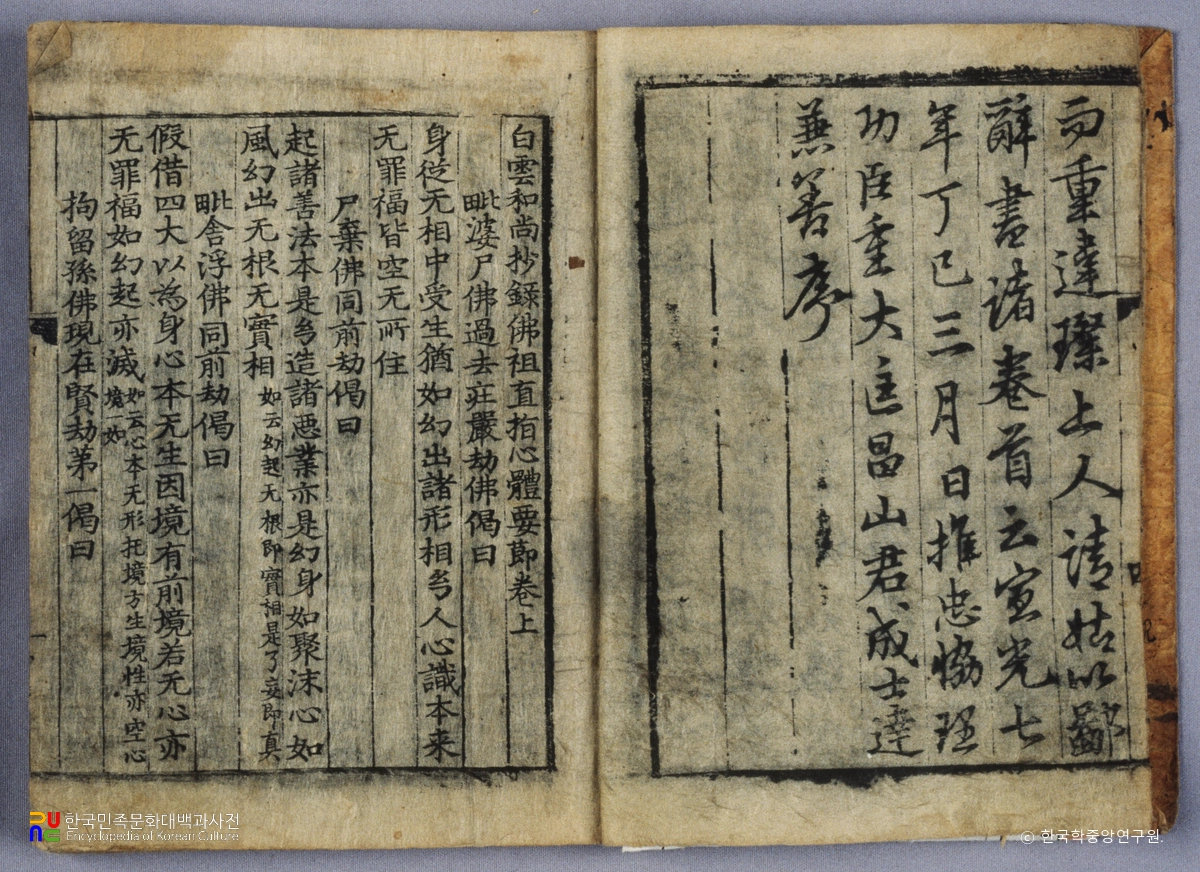 而重違璨上人請姑以鄙
辭書諸卷首云宣光七
年丁巳三月日推忠協理
功臣重大匡昌山君成士達
兼善序
白雲和尚抄錄佛祖直指心體要節卷上
毗婆尸佛過去莊嚴劫佛偈曰
身從无相中受生猶如幻出諸形相㓜人心識本来
无罪福皆空无所住
尸棄佛同前劫偈曰
起諸善法本是㓜造諸惡業亦是幻身如聚沫心如
風幻出无根无實相 如云幻起无根即實相是了妄即真
毗舍浮佛同前劫偈曰
假借四大以為身心本无生因境有前境若无心亦
无罪福如幻起亦滅 如云心本无形托境方生境性亦空心
境一如
拘留孫佛現在賢劫第一偈曰
한국민족문화대백과사전
Encyclopedia of Korean Culture
ⓒ 한국학중앙연구원.